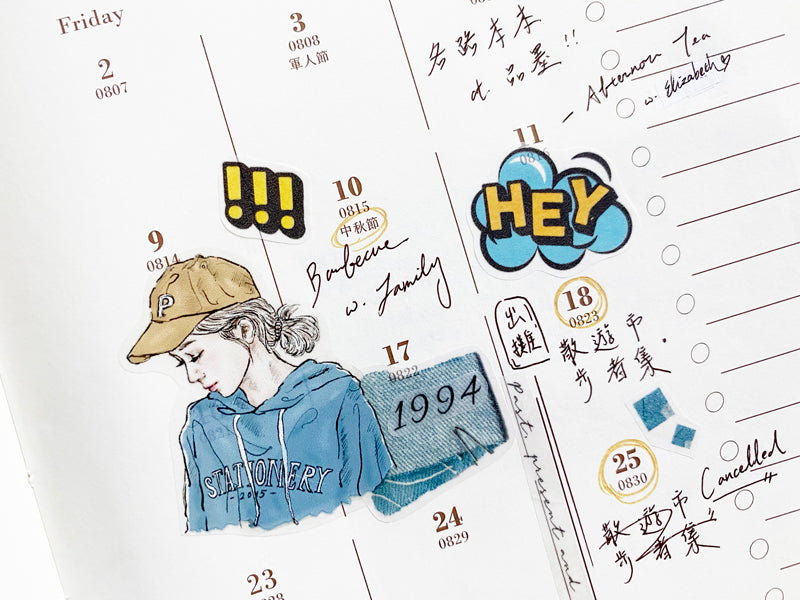 Friday
2
0807
3
0808
軍人節
Afternoon Tea
w. Elizabeth
9
0814
P
STATIONERY
-2015-
!!!
10
0815
中秋節
Barbecue
w. Family
11
HEY
17
0822
1994
出攤!
18
0823
散遊市
步者集.
past, present and
23
24
0829
25
0830
散遊市 Cancelled
步者集